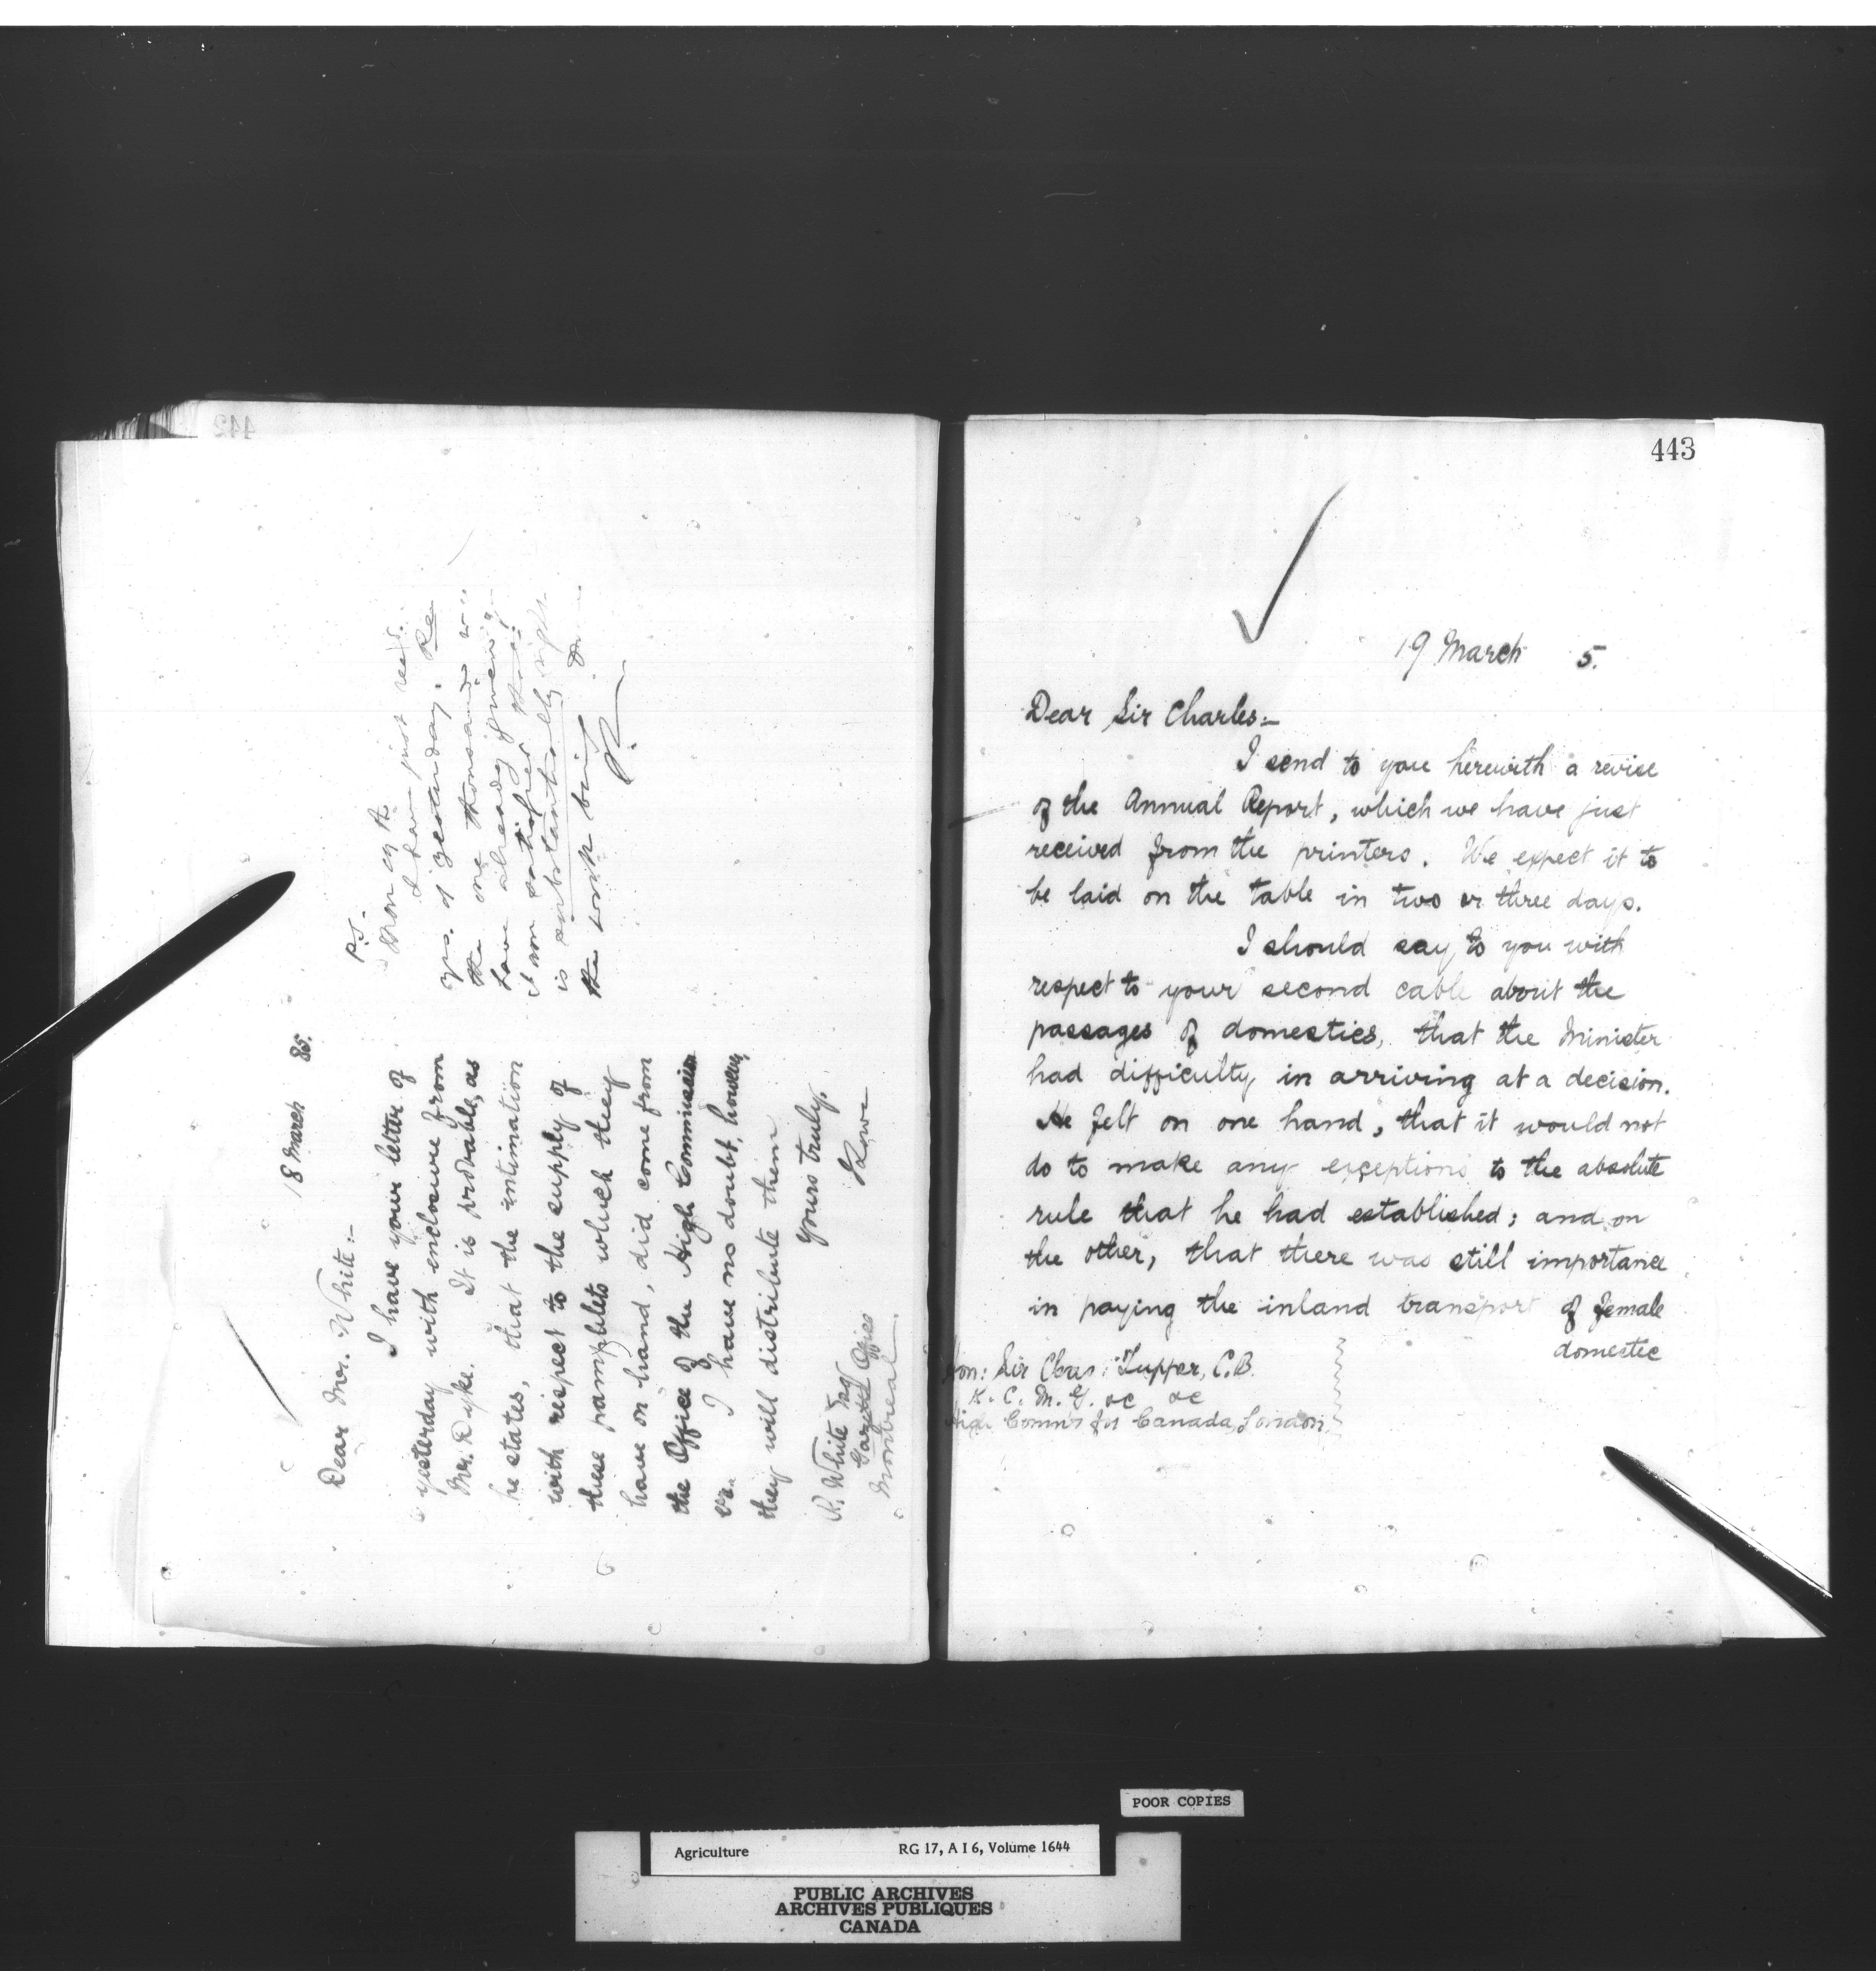 442
18 March 85.
Dear Mr. White:-
I have your letter of
yesterday with enclosure from
Mr. Dyke. It is probable, as
he states, that the intimation
with respect to the supply of
these pamphlets which they
have on hand, did come from
the Office of the High Commission
er. I have no doubt, however,
they will distribute them.
Yours truly,
J Lowe
R. White Esq
Gazette Office
Montreal.
P.S.
I have just recd.
yrs. of yesterday. Re
the one thousand
have already given
I am satisfied
is substantially right
the work being
JL
443
19 March 5.
Dear Sir Charles:-
I send to you herewith a revise
of the Annual Report, which we have just
received from the printers. We expect it to
be laid on the table in two or three days.
I should say to you with
respect to your second cable about the
passages of domestics, that the Minister
had difficulty in arriving at a decision.
He felt on one hand, that it would not
do to make any exceptions to the absolute
rule that he had established; and on
the other, that there was still importance
in paying the inland transport of female
domestic
Hon: Sir Chas: Tupper, C.B.
K. C. M. G. &c &c
High Commr for Canada, London.
POOR COPIES
Agriculture RG 17, A I 6, Volume 1644
PUBLIC ARCHIVES
ARCHIVES PUBLIQUES
CANADA